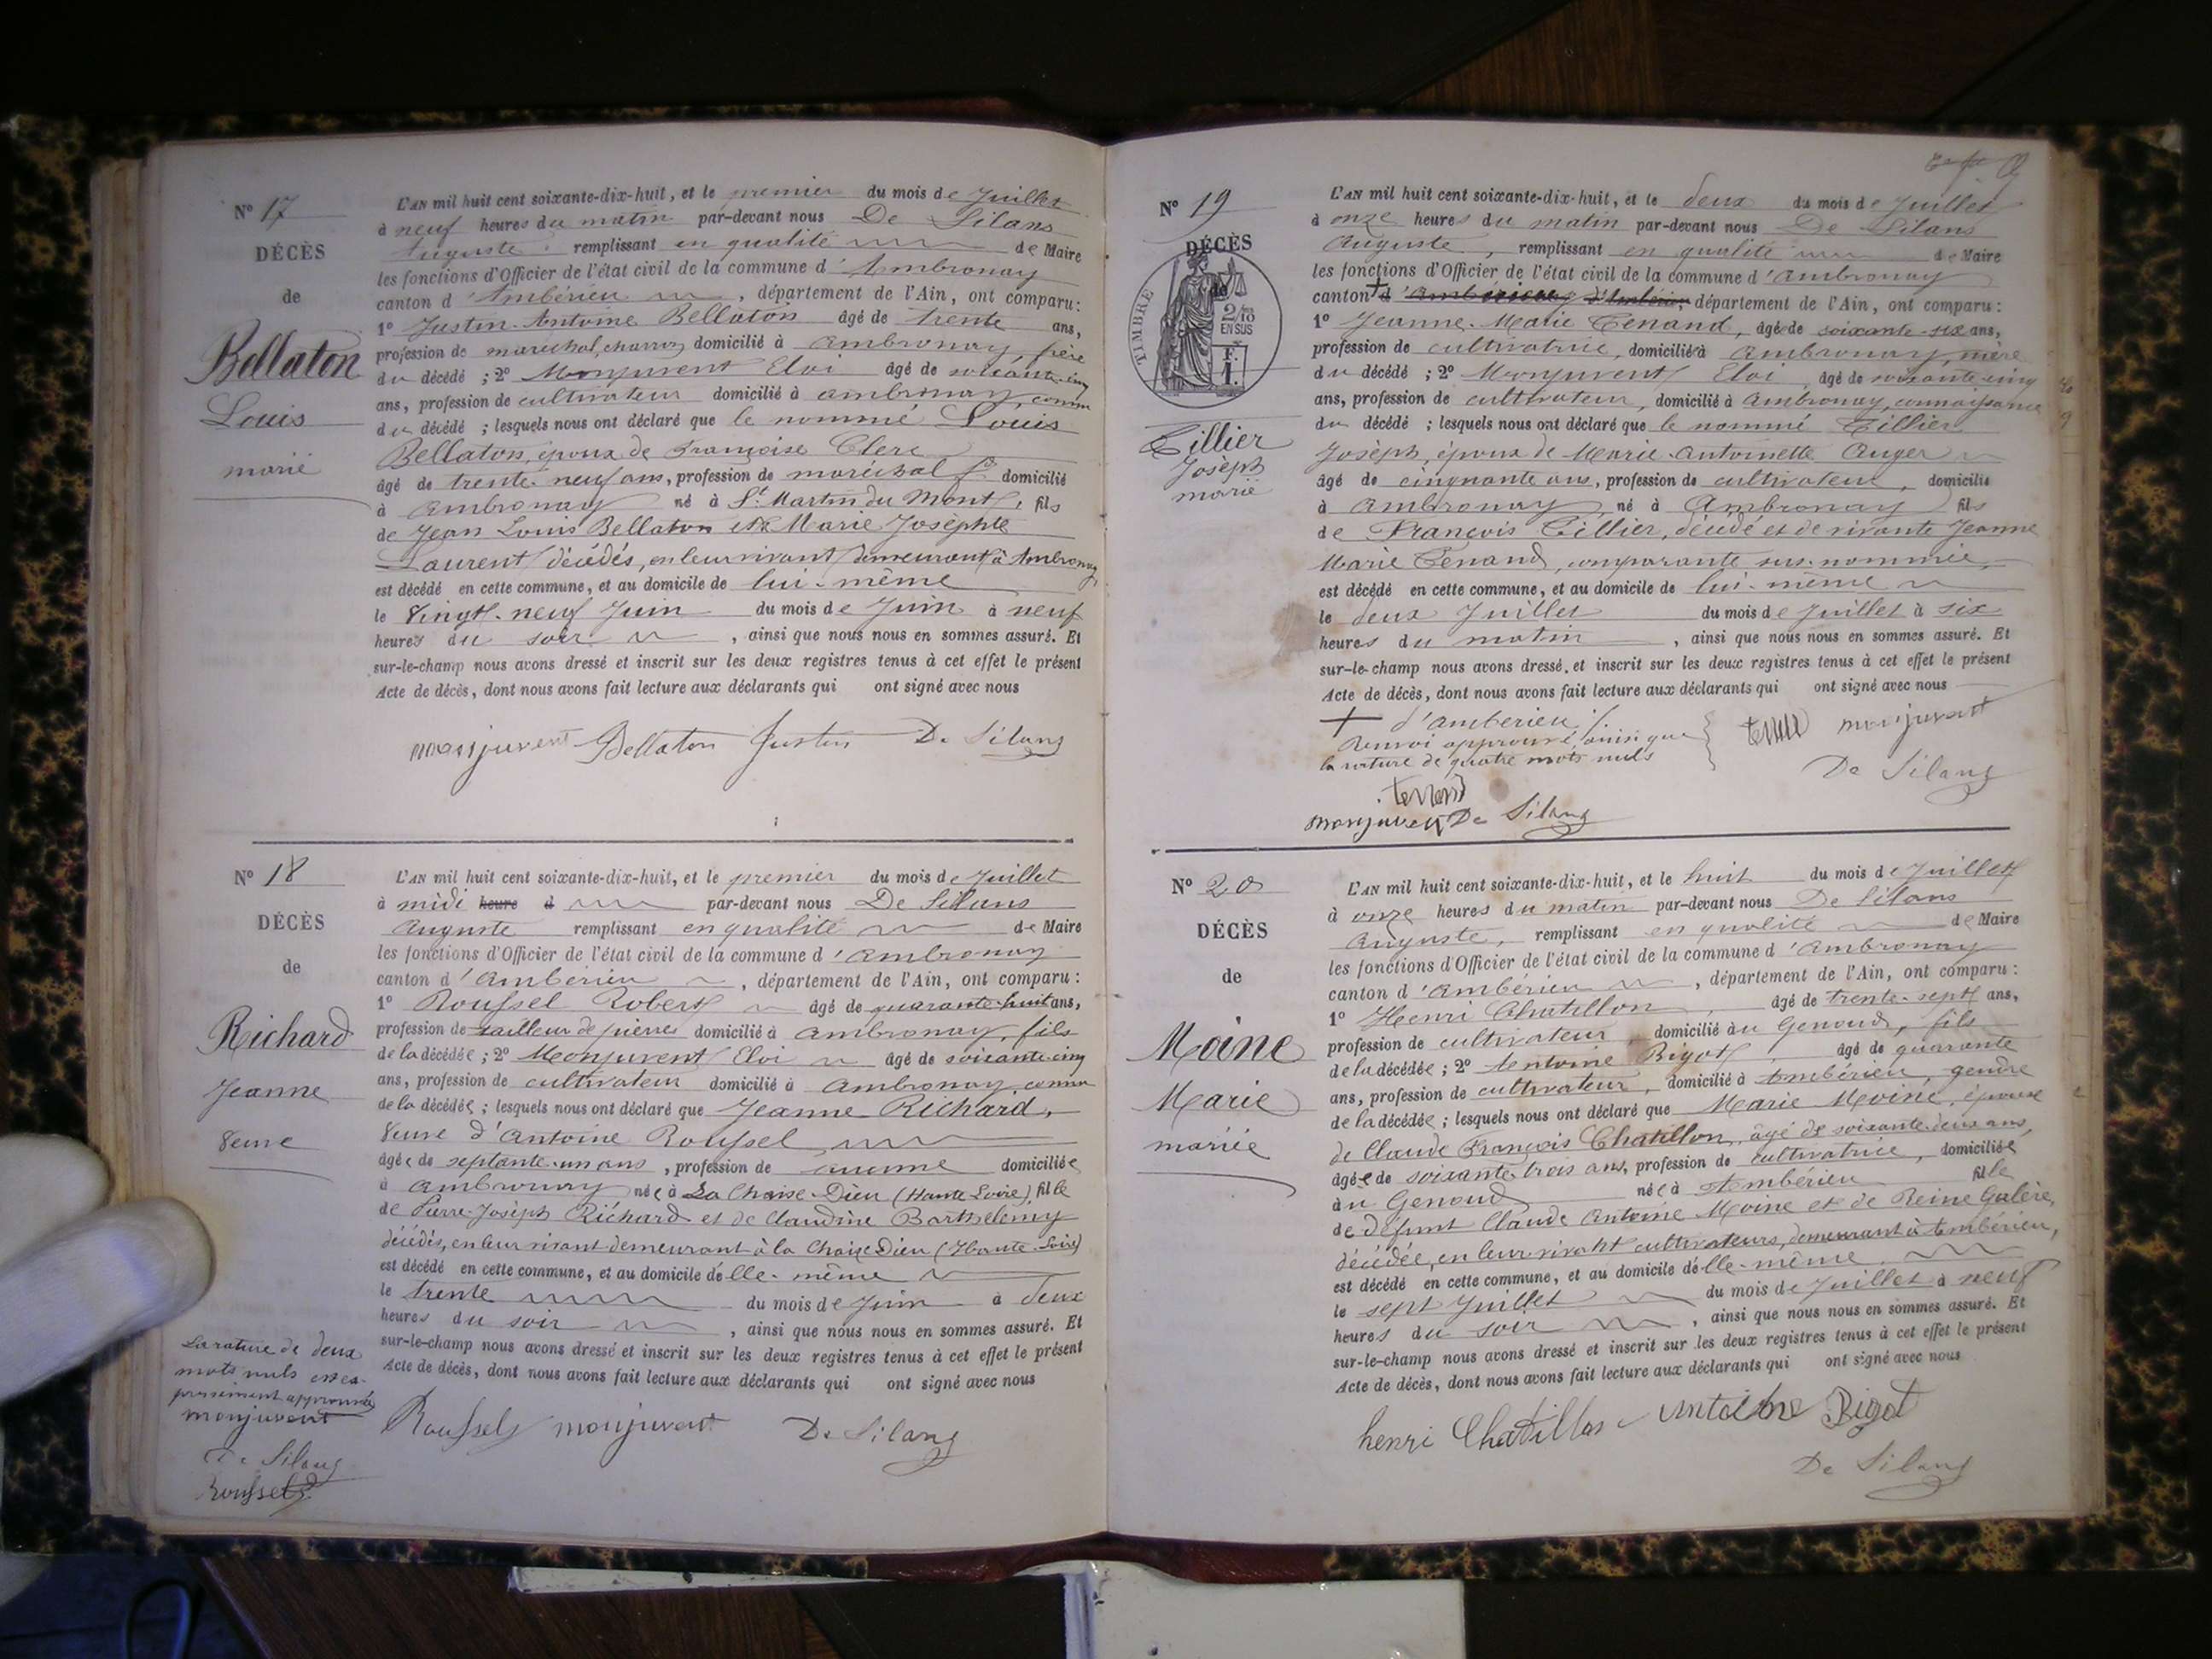 Nº 17
DÉCÈS
de
Bellaton
Louis
marié
L'AN mil huit cent soixante-dix-huit, et le premier du mois de Juillet
à neuf heures du matin par-devant nous De Silans
Auguste remplissant en qualité de Maire
les fonctions d'Officier de l'état civil de la commune d'Ambronay
canton d'Ambérieu, département de l'Ain, ont comparu:
1º Justin-Antoine Bellaton âgé de trente ans,
profession de maréchal, charron domicilié à Ambronay, frère
du décédé ; 2º Monjuvent Eloi âgé de soixante-cinq
ans, profession de cultivateur domicilié à ambronay, connu
du décédé ; lesquels nous ont déclaré que le nommé Louis
Bellaton, époux de Françoise Clerc
âgé de trente-neuf ans, profession de maréchal ft domicilié
à Ambronay né à St Martin du Mont, fils
de Jean Louis Bellaton et de Marie Josephte
Laurent décédés, en leur vivant demeurant à Ambronay,
est décédé en cette commune, et au domicile de lui-même
le Vingt-neuf Juin du mois de Juin à neuf
heures du soir, ainsi que nous nous en sommes assuré. Et
sur-le-champ nous avons dressé et inscrit sur les deux registres tenus à cet effet le présent
Acte de décès, dont nous avons fait lecture aux déclarants qui ont signé avec nous
monjuvent Bellaton Justin De Silans
Nº 18
DÉCÈS
de
Richard
Jeanne
Veuve
L'AN mil huit cent soixante-dix-huit, et le premier du mois de Juillet
à midi heure d par-devant nous De Silans
Auguste remplissant en qualité de Maire
les fonctions d'Officier de l'état civil de la commune d'Ambronay
canton d'Ambérieu, département de l'Ain, ont comparu :
1º Roussel Robert âgé de quarante-huit ans,
profession de tailleur de pierres domicilié à Ambronay, fils
de la décédée ; 2º Monjuvent Eloi âgé de soixante-cinq
ans, profession de cultivateur domicilié à Ambronay connu
de la décédée ; lesquels nous ont déclaré que Jeanne Richard,
Veuve d'Antoine Roussel
âgée de septante-un ans, profession de aucune domiciliée
à Ambronay née à La Chaise-Dieu (Haute Loire), fille
de Pierre-Joseph Richard et de Claudine Barthelemy
décédés, en leur vivant demeurant à la Chaise Dieu (Haute-Loire)
est décédé en cette commune, et au domicile d'elle-même
le trente du mois de Juin à deux
heures du soir, ainsi que nous nous en sommes assuré. Et
sur-le-champ nous avons dressé et inscrit sur les deux registres tenus à cet effet le présent
Acte de décès, dont nous avons fait lecture aux déclarants qui ont signé avec nous
La rature de deux
mots nuls est ex-
pressément approuvée
monjuvent
De Silans
Roussel
Roussel monjuvent De Silans
Nº 19
DÉCÈS
de
TIMBRE
2/10
EN SUS
Tillier
Joseph
marié
L'AN mil huit cent soixante-dix-huit, et le deux du mois de Juillet
à onze heures du matin par-devant nous De Silans
Auguste, remplissant en qualité de Maire
les fonctions d'Officier de l'état civil de la commune d'Ambronay
canton + d' département de l'Ain, ont comparu :
1º Jeanne-Marie Tenand, âgée de soixante-six ans,
profession de cultivatrice, domiciliée à Ambronay, mère
du décédé ; 2º Monjuvent Eloi, âgé de soixante-cinq
ans, profession de cultivateur, domicilié à Ambronay, connaissance
du décédé ; lesquels nous ont déclaré que le nommé Tillier
Joseph, époux de Marie-Antoinette Auger
âgé de cinquante ans, profession de cultivateur, domicilié
à Ambronay né à Ambronay fils
de François Tillier, décédé et de vivante Jeanne
Marie Tenand, comparante sus-nommée,
est décédé en cette commune, et au domicile de lui-même
le deux Juillet du mois de Juillet à six
heures du matin, ainsi que nous nous en sommes assuré. Et
sur-le-champ nous avons dressé et inscrit sur les deux registres tenus à cet effet le présent
Acte de décès, dont nous avons fait lecture aux déclarants qui ont signé avec nous
+ d'ambérieu ./.
Renvoi approuvé, ainsi que
la rature de quatre mots nuls
monjuvent
De Silans
monjuvent De Silans
Nº 20
DÉCÈS
de
Moine
Marie
mariée
L'AN mil huit cent soixante-dix-huit, et le huit du mois de Juillet
à onze heures du matin par-devant nous De Silans
Auguste, remplissant en qualité de Maire
les fonctions d'Officier de l'état civil de la commune d'Ambronay
canton d'Ambérieu, département de l'Ain, ont comparu :
1º Henri Chatillon, âgé de trente-sept ans,
profession de cultivateur, domicilié au Genoud, fils
de la décédée ; 2º Antoine Bigot, âgé de quarante
ans, profession de cultivateur, domicilié à Ambérieu, gendre
de la décédée ; lesquels nous ont déclaré que Marie Moine, épouse
de Claude François Chatillon, âgé de soixante-deux ans,
âgée de soixante trois ans, profession de cultivatrice, domiciliée
au Genoud née à Ambérieu fille
de défunt Claude Antoine Moine et de Reine Galère,
décédée, en leur vivant cultivateurs, demeurant à Ambérieu,
est décédé en cette commune, et au domicile d'elle-même
le sept Juillet du mois de Juillet à neuf
heures du soir, ainsi que nous nous en sommes assuré. Et
sur-le-champ nous avons dressé et inscrit sur les deux registres tenus à cet effet le présent
Acte de décès, dont nous avons fait lecture aux déclarants qui ont signé avec nous
henri Chatillon Antoine Bigot
De Silans